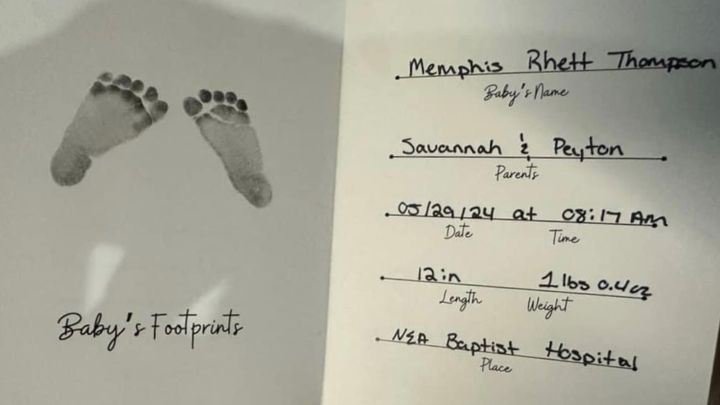 Memphis Rhett Thompson
Baby's Name
Savannah & Peyton
Parents
05/29/24 at 08:17 AM
Date Time
12in 1lbs 0.4oz
Length Weight
NEA Baptist Hospital
Place
Baby's Footprints